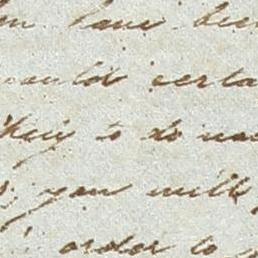 have been
would certa
they to do
you will
order to